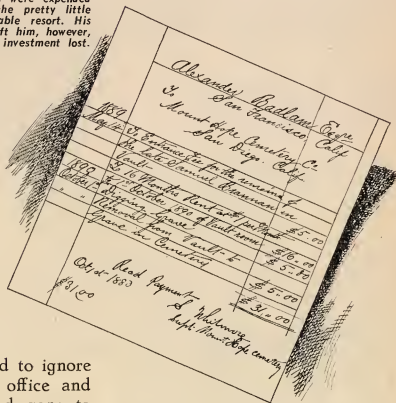 were expended
he pretty little
able resort. His
ft him, however,
investment lost.
Alexander Badlam, Esqre
San Francisco Calif
To
Mount Hope Cemetery Co
San Diego, Calif
1889
May 14 To Entrance Fee for the remains of
the late Samuel Brannan in
Vault $5.00
To 16 Months Rent at per Month
to October 1890 of Vault room $16.00
Digging Grave $5.00
Removal from Vault to
Grave in Cemetery $5.00
$31.00
Read Payment
S. Whitmore
Supt. Mount Hope Cemetery
$31.00
d to ignore
office and